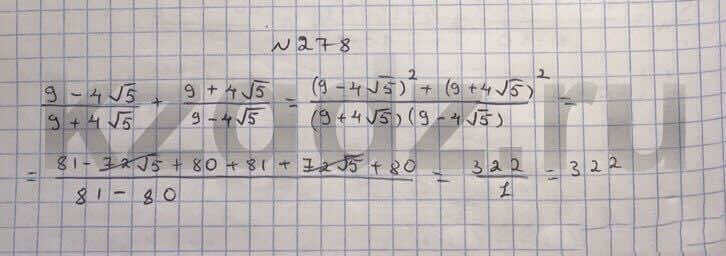 №278
(9 - 4√5)/(9 + 4√5) + (9 + 4√5)/(9 - 4√5) = ((9 - 4√5)² + (9 + 4√5)²)/((9 + 4√5)(9 - 4√5)) =
= (81 - 72√5 + 80 + 81 + 72√5 + 80)/(81 - 80) = 322/1 = 322
kzgdz.ru